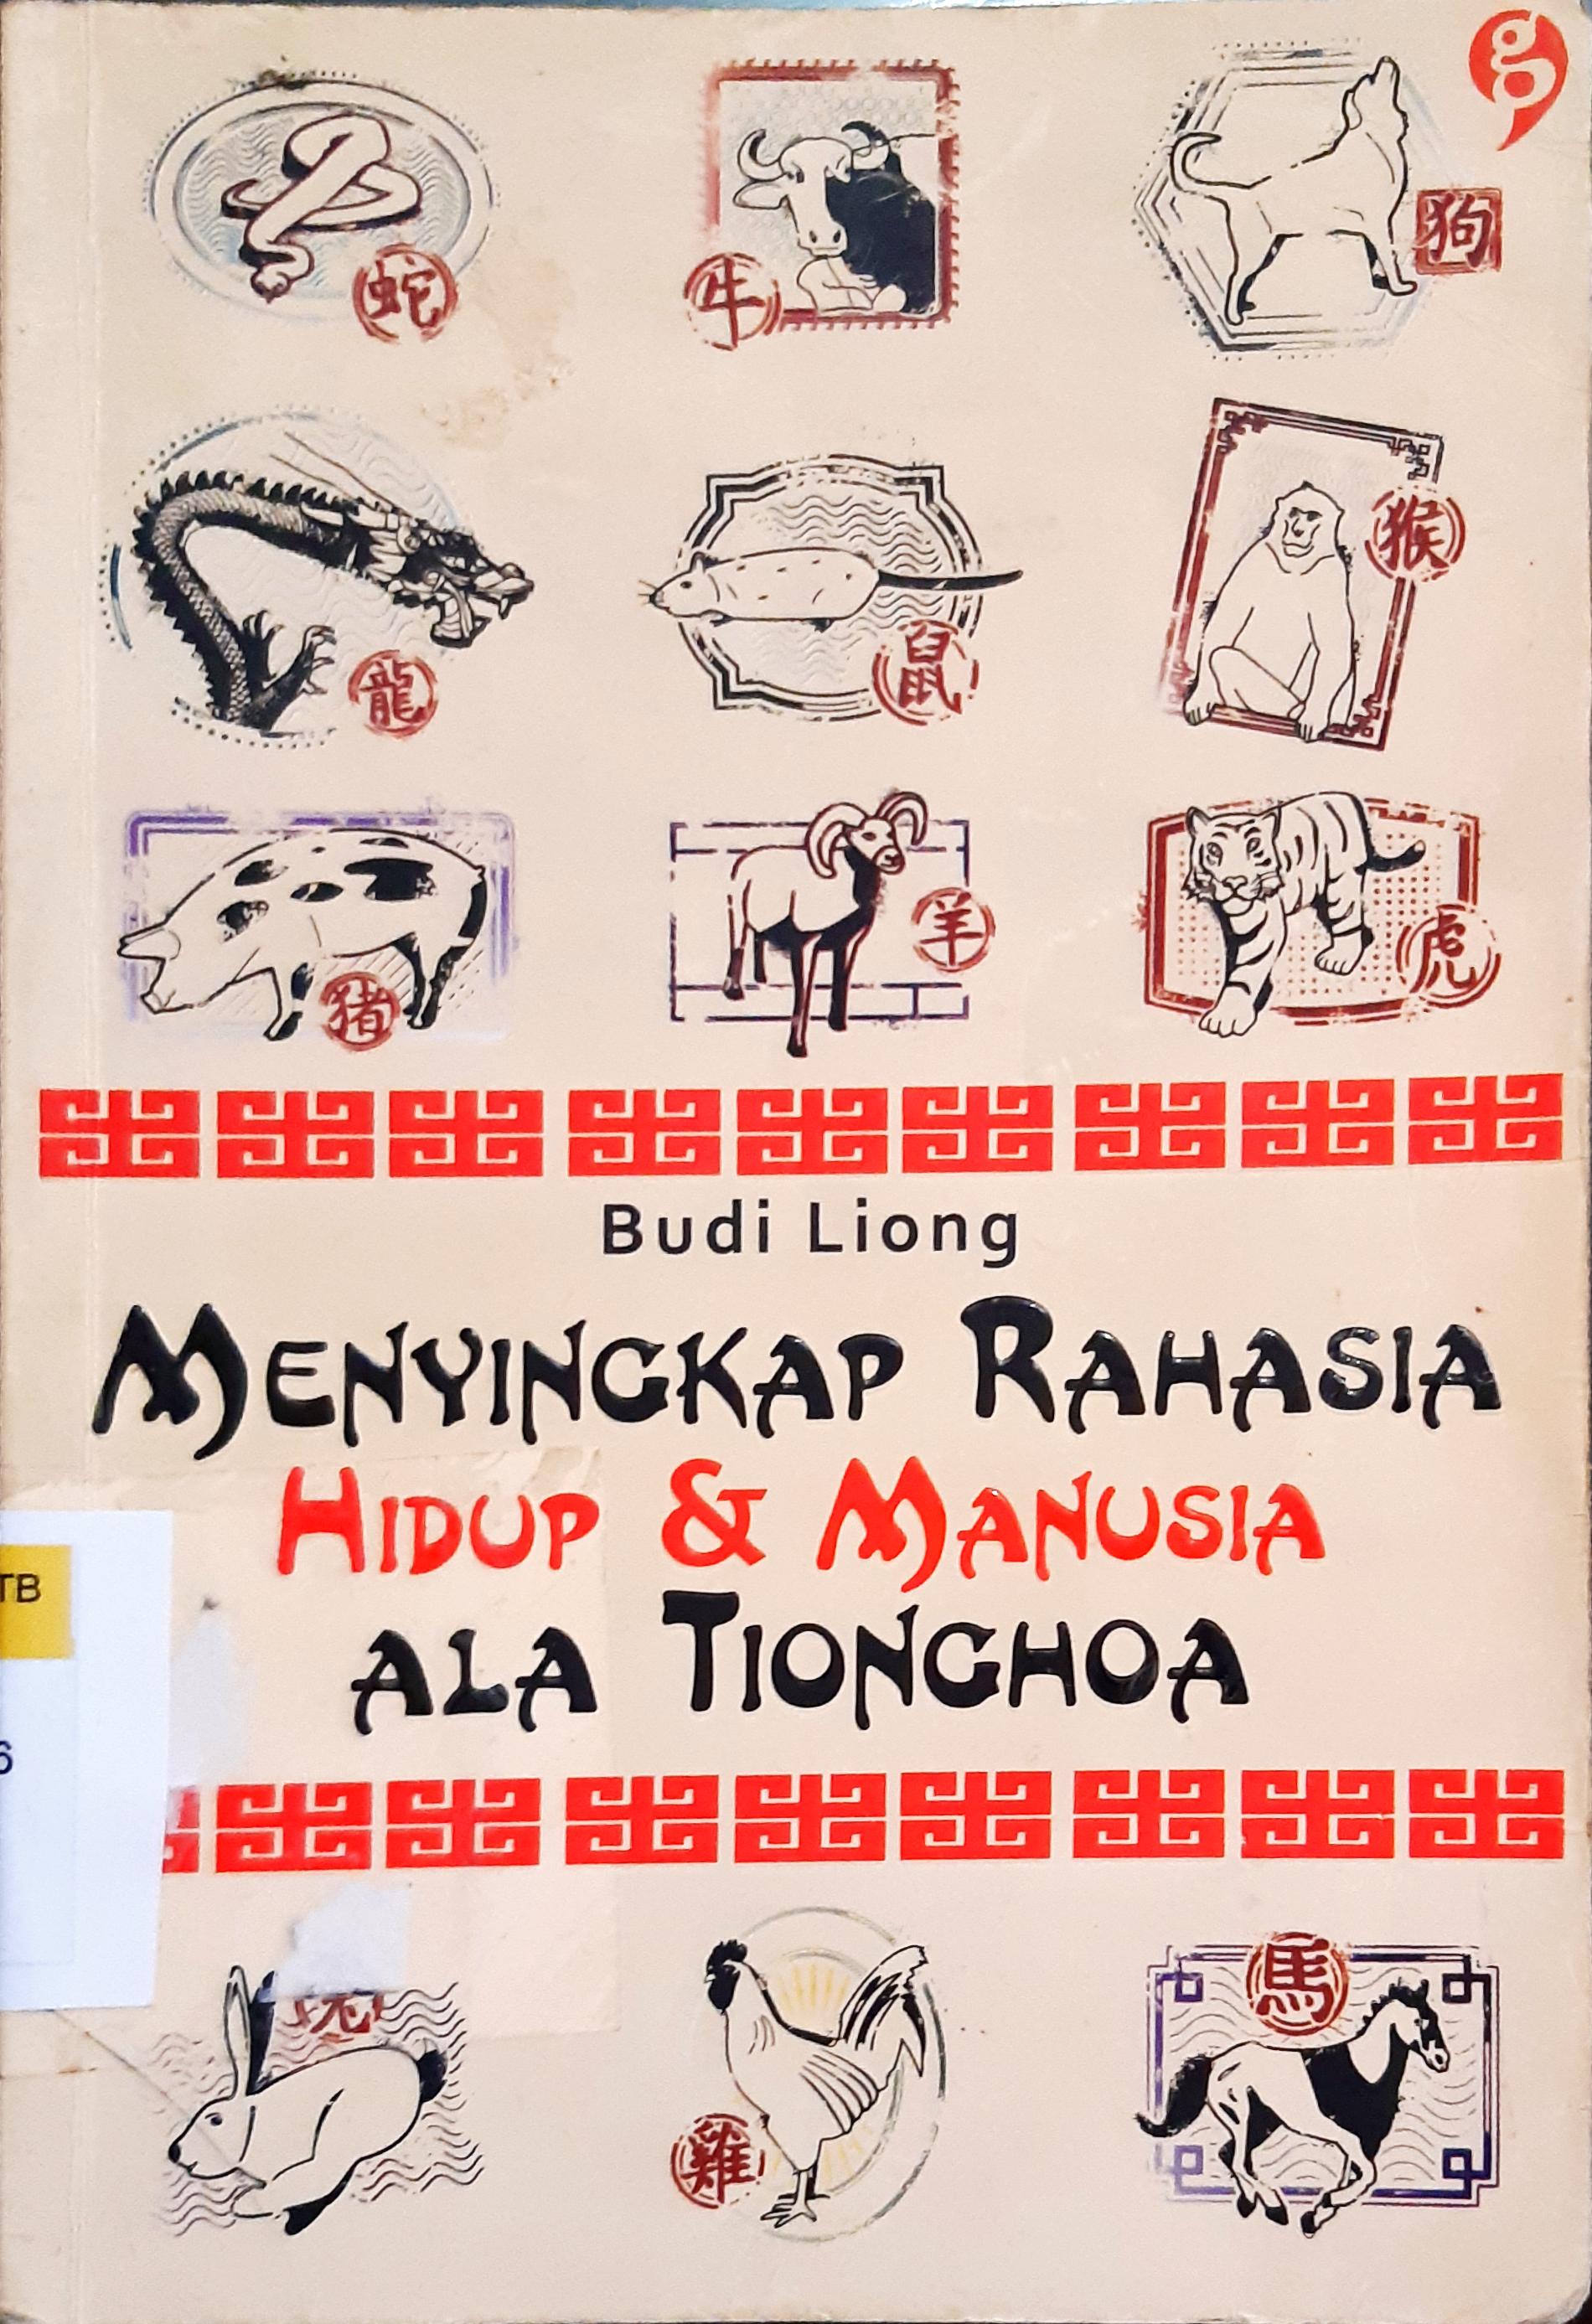 g
蛇
牛
狗
龍
鼠
猴
猪
羊
虎
Budi Liong
MENYINGKAP RAHASIA
HIDUP & MANUSIA
ALA TIONGHOA
TB
6
兔
雞
馬